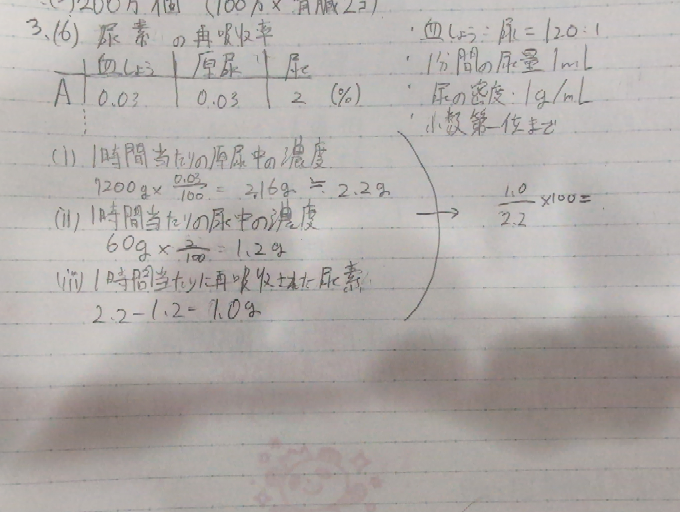 (-)1200万個 (100万×腎臓2コ)
3.(6) 尿素の再吸収率
血しょう 原尿 尿
A 0.03 0.03 2 (%)
・血しょう:尿=120:1
・1分間の尿量1mL
・尿の密度・1g/mL
・小数第一位まで
(i) 1時間当たりの原尿中の濃度
7200g×0.03/100=2.16g≒2.2g
(ii) 1時間当たりの尿中の濃度
60g×2/100=1.2g
(iii) 1時間当たりに再吸収された尿素
2.2-1.2=1.0g
→ 1.0/2.2×100=